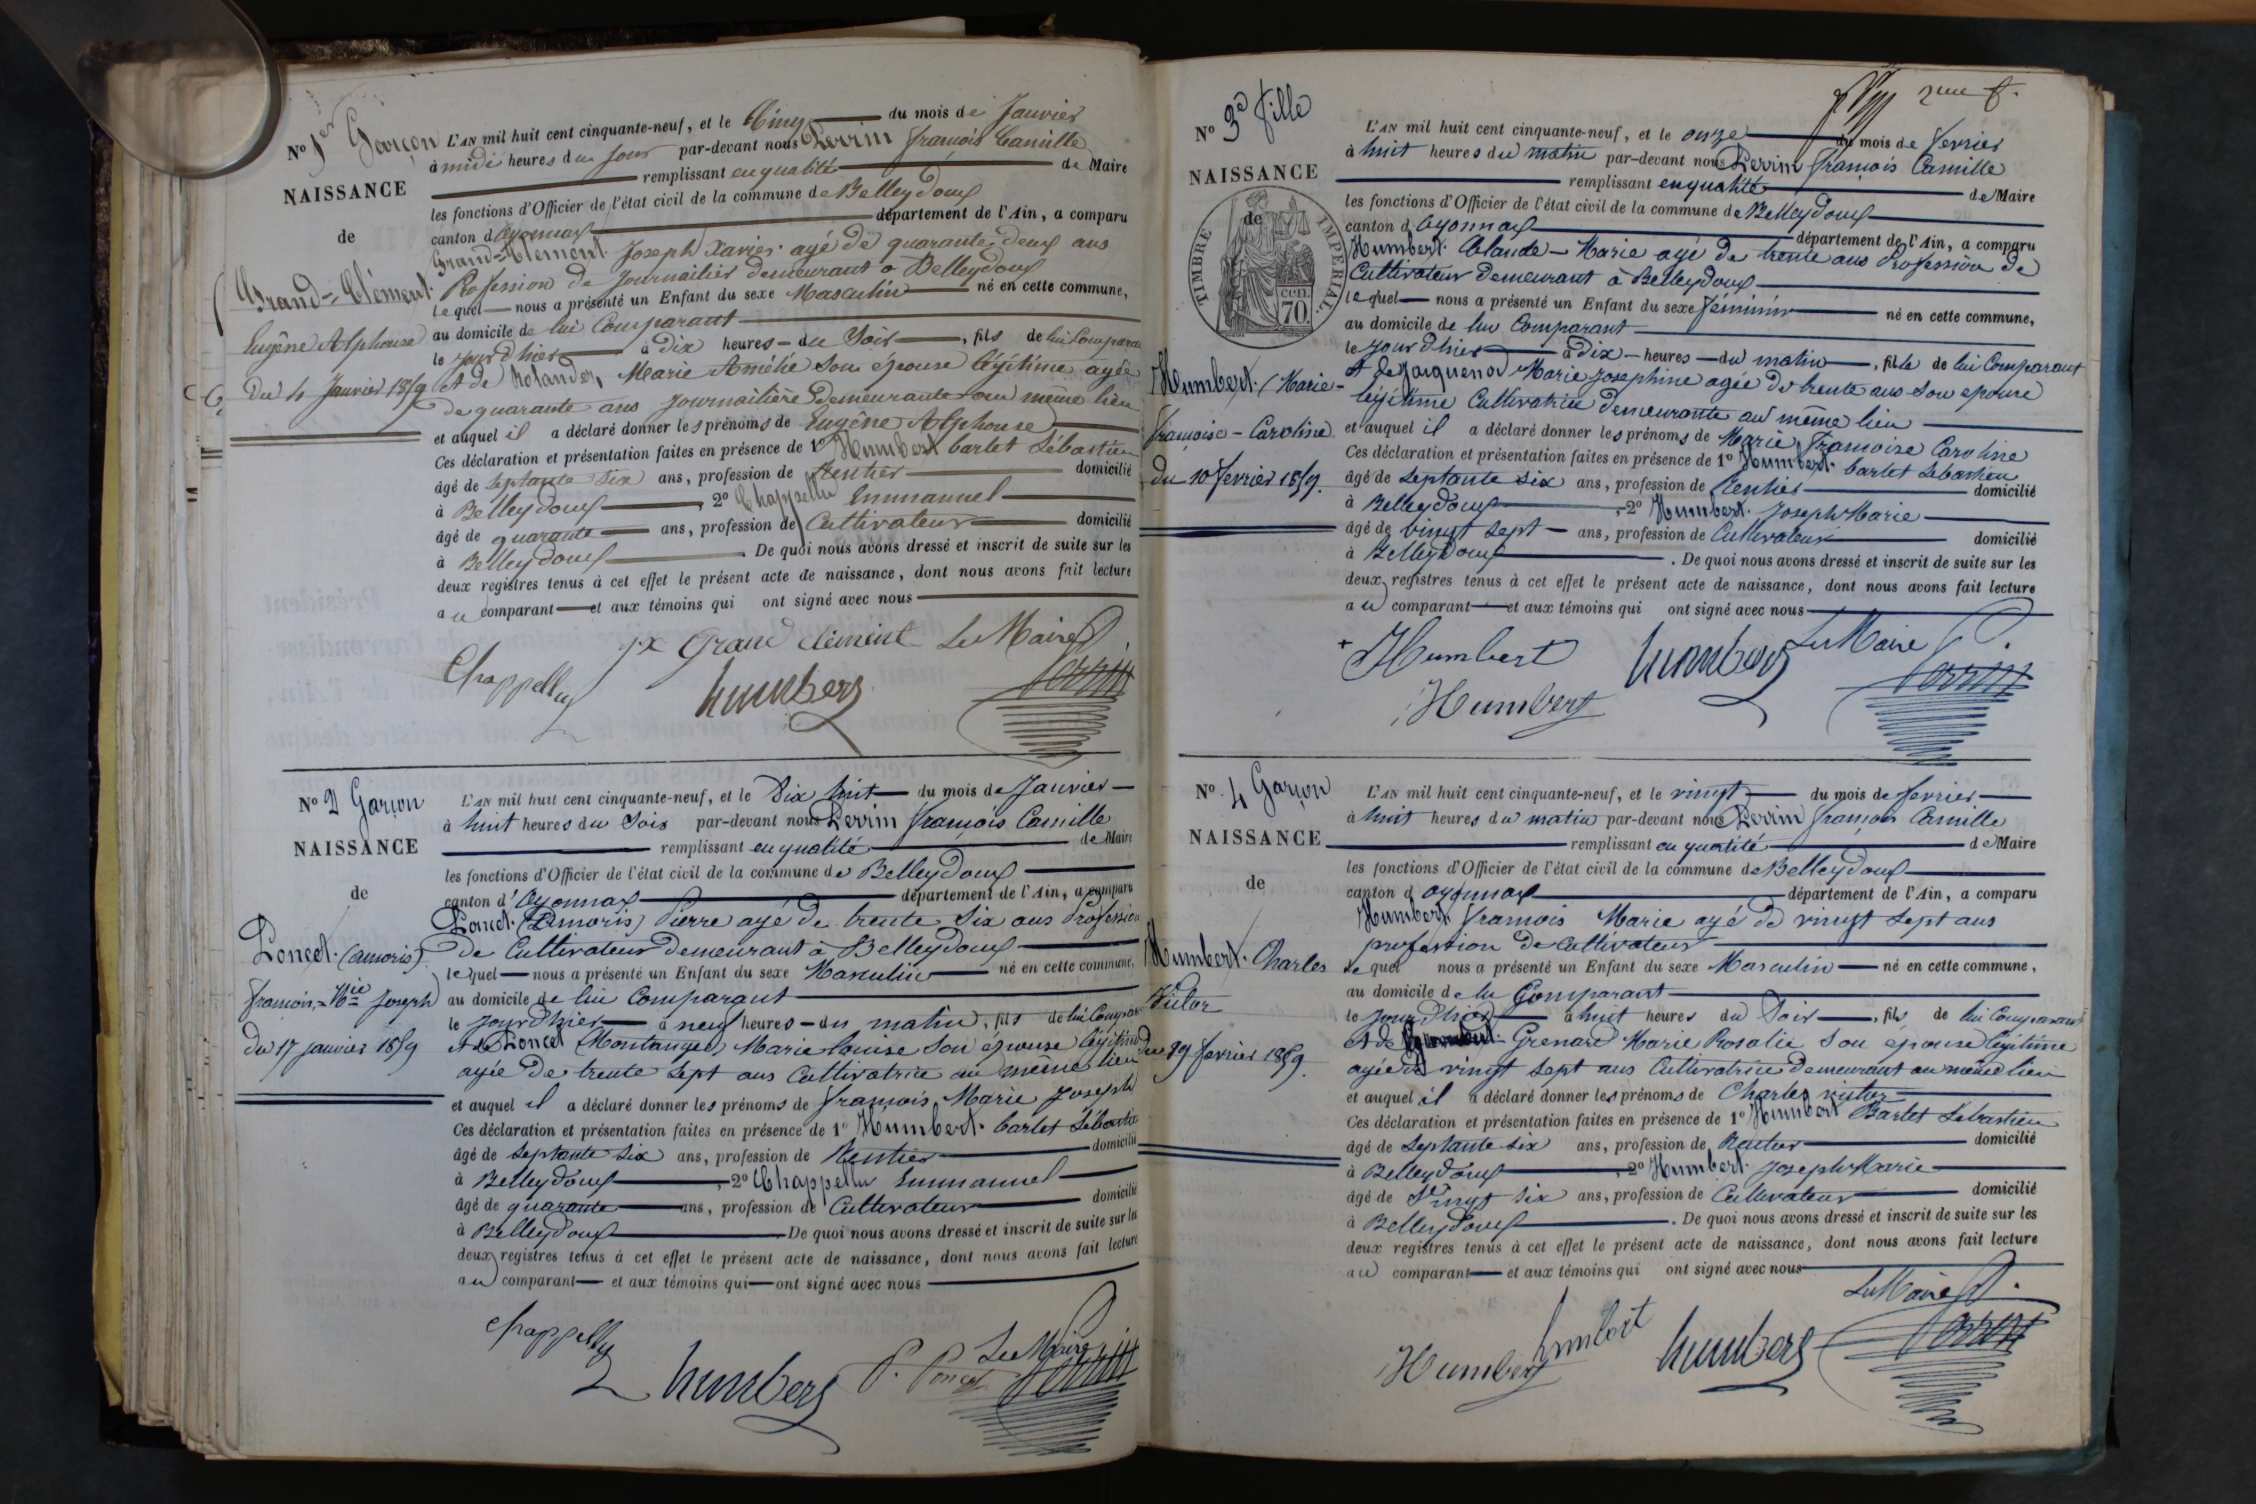 No 1er Garçon
NAISSANCE
de
Grand-Clément
Eugène Alphonse
Du 4 Janvier 1859
L'AN mil huit cent cinquante-neuf, et le Cinq du mois de Janvier
à midi heures du Jour par-devant nous Perrin françois Camille
remplissant en qualité de Maire
les fonctions d'Officier de l'état civil de la commune de Belleydoux
canton d'Oyonnax département de l'Ain, a comparu
Grand-Clément Joseph Xavier agé de quarante deux ans
Profession de Journalier demeurant à Belleydoux
lequel nous a présenté un Enfant du sexe Masculin né en cette commune,
au domicile de lui Comparant
le jour d'hier à dix heures du Soir, fils de lui Comparant
et de Rolandez Marie Amélie Son épouse légitime agée
de quarante ans journalière demeurante au même lieu
et auquel il a déclaré donner les prénoms de Eugène Alphonse
Ces déclaration et présentation faites en présence de 1o Humbert barlet Sébastien
âgé de Septante Six ans, profession de Rentier domicilié
à Belleydoux, 2o Chappellu Emmanuel
âgé de quarante ans, profession de Cultivateur domicilié
à Belleydoux. De quoi nous avons dressé et inscrit de suite sur les
deux registres tenus à cet effet le présent acte de naissance, dont nous avons fait lecture
au comparant et aux témoins qui ont signé avec nous
Jx Grand clément Le Maire
Chappellu humbert Perrin
No 2 Garçon
NAISSANCE
de
Poncet (amoris)
françois Mie Joseph
du 17 janvier 1859
L'AN mil huit cent cinquante-neuf, et le Dix huit du mois de Janvier
à huit heures du Soir par-devant nous Perrin françois Camille
remplissant en qualité de Maire
les fonctions d'Officier de l'état civil de la commune de Belleydoux
canton d'Oyonnax département de l'Ain, a comparu
Poncet (amoris) Pierre agé de trente Six ans Profession
de Cultivateur demeurant à Belleydoux
lequel nous a présenté un Enfant du sexe Masculin né en cette commune,
au domicile de lui Comparant
le jour d'hier à neuf heures du matin, fils de lui Comparant
et de Poncet (Montanges) Marie louise Son épouse légitime
agée de trente Sept ans Cultivatrice au même lieu
et auquel il a déclaré donner les prénoms de françois Marie Joseph
Ces déclaration et présentation faites en présence de 1o Humbert barlet Sébastien
âgé de Septante Six ans, profession de Rentier domicilié
à Belleydoux, 2o Chappellu Emmanuel
âgé de quarante ans, profession de Cultivateur domicilié
à Belleydoux De quoi nous avons dressé et inscrit de suite sur les
deux registres tenus à cet effet le présent acte de naissance, dont nous avons fait lecture
au comparant et aux témoins qui ont signé avec nous
Chappellu Le Maire
humbert P. Poncet Perrin
2me f.
No 3e fille
NAISSANCE
de
TIMBRE IMPERIAL
70 cen.
Humbert (Marie-
françoise-Caroline
du 10 fevrier 1859.
L'AN mil huit cent cinquante-neuf, et le onze du mois de fevrier
à huit heures du matin par-devant nous Perrin françois Camille
remplissant en qualité de Maire
les fonctions d'Officier de l'état civil de la commune de Belleydoux
canton d oyonnax département de l'Ain, a comparu
Humbert Claude-Marie agé de trente ans Profession de
Cultivateur demeurant à Belleydoux
lequel nous a présenté un Enfant du sexe féminin né en cette commune,
au domicile de lui Comparant
le jour d'hier à Dix heures du matin, fille de lui Comparant
et de Jacquenod Marie Josephine agée de trente ans Son epouse
légitime Cultivatrice demeurante au même lieu
et auquel il a déclaré donner les prénoms de Marie françoise Caroline
Ces déclaration et présentation faites en présence de 1o Humbert barlet Sebastien
âgé de Septante Six ans, profession de Rentier domicilié
à Belleydoux, 2o Humbert Joseph Marie
âgé de vingt Sept ans, profession de Cultivateur domicilié
à Belleydoux. De quoi nous avons dressé et inscrit de suite sur les
deux registres tenus à cet effet le présent acte de naissance, dont nous avons fait lecture
au comparant et aux témoins qui ont signé avec nous
Humbert humbert Le Maire
Humbert Perrin
No 4 Garçon
NAISSANCE
de
Humbert Charles
Victor
du 19 fevrier 1859.
L'AN mil huit cent cinquante-neuf, et le vingt du mois de fevrier
à huit heures du matin par-devant nous Perrin françois Camille
remplissant en qualité de Maire
les fonctions d'Officier de l'état civil de la commune de Belleydoux
canton d oyonnax département de l'Ain, a comparu
Humbert françois Marie agé de vingt Sept ans
profession de Cultivateur
Le quel nous a présenté un Enfant du sexe Masculin né en cette commune,
au domicile de lui Comparant
le jour d'hier à huit heures du Soir, fils de lui Comparant
et de Grenard Marie Rosalie Son épouse légitime
agée de vingt Sept ans Cultivatrice demeurant au même lieu
et auquel il a déclaré donner les prénoms de Charles victor
Ces déclaration et présentation faites en présence de 1o Humbert Barlet Sebastien
âgé de Septante Six ans, profession de Rentier domicilié
à Belleydoux, 2o Humbert Joseph Marie
âgé de Vingt Six ans, profession de Cultivateur domicilié
à Belleydoux. De quoi nous avons dressé et inscrit de suite sur les
deux registres tenus à cet effet le présent acte de naissance, dont nous avons fait lecture
au comparant et aux témoins qui ont signé avec nous
Le Maire
Humbert humbert humbert Perrin